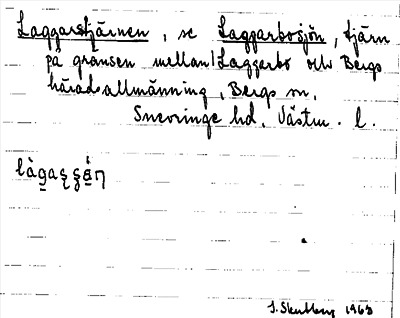 Laggarstjärnen, se Laggarbosjön, tjärn
på gränsen mellan Laggarbo och Bergs
häradsallmänning, Bergs sn,
Snevringe hd, Västm. l.
1963